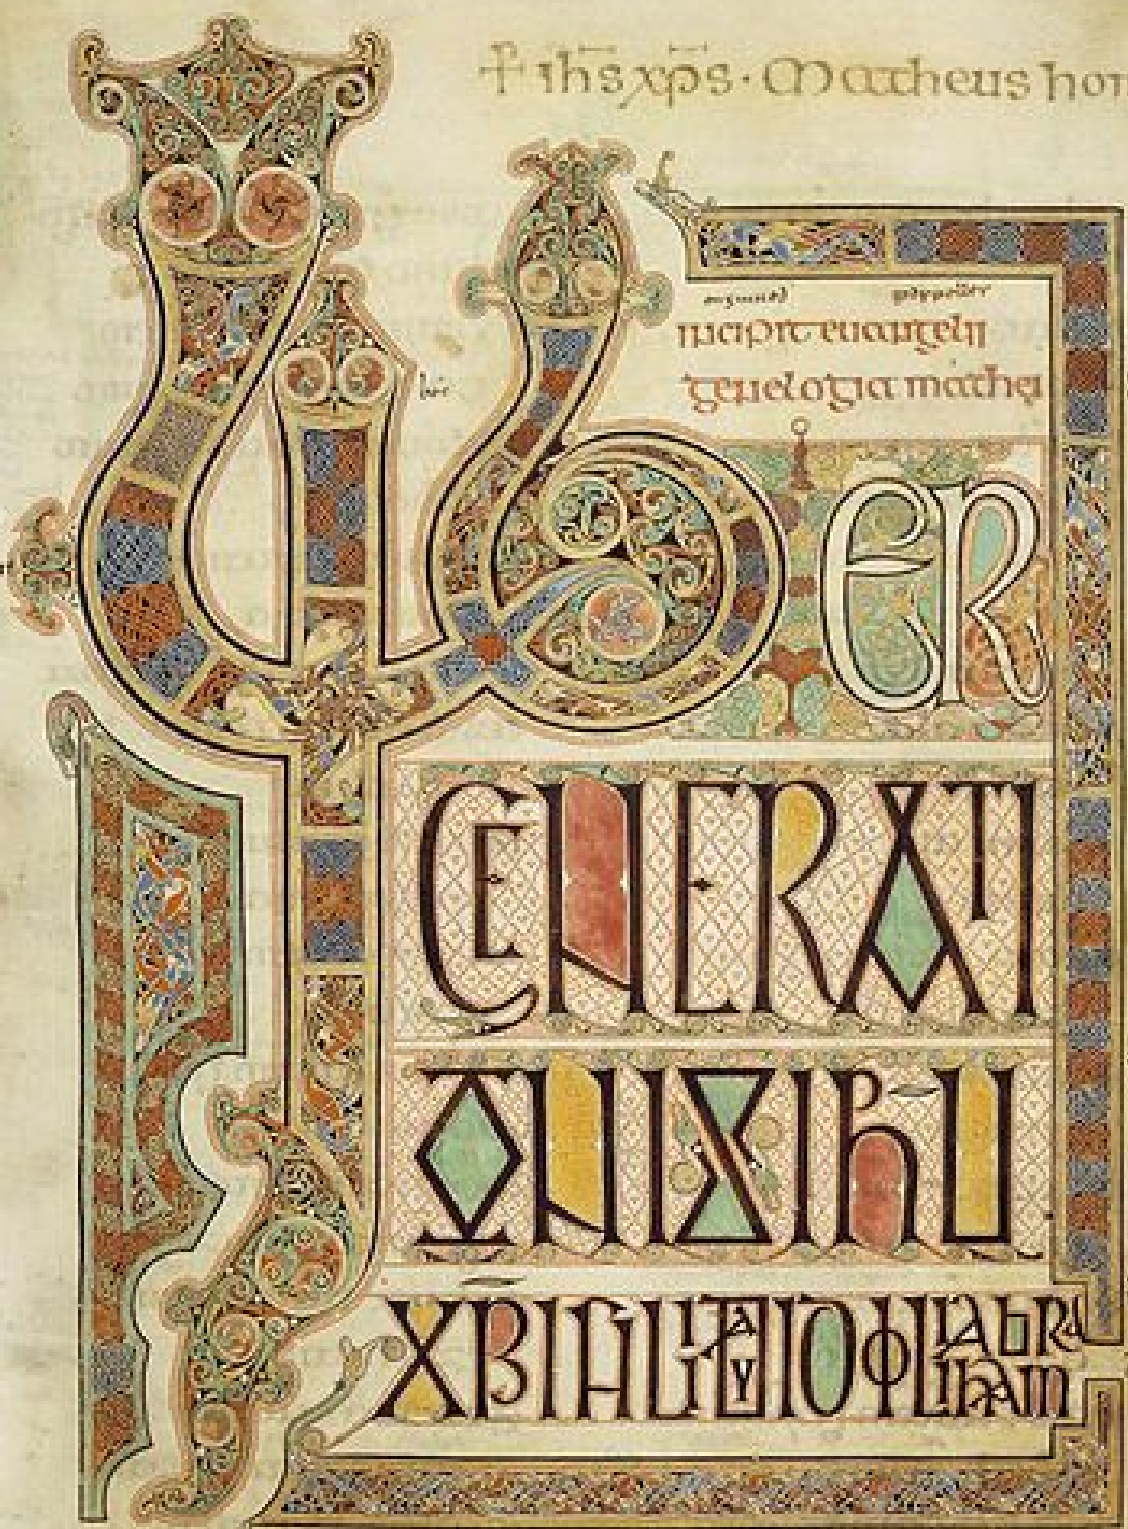 + ihs xps · Matheus hom
incipit euangelii
genelogia mathei
LIBER
GENERATI
ONISIHU
XPIFILIDAVIDFILIABRA
HAM